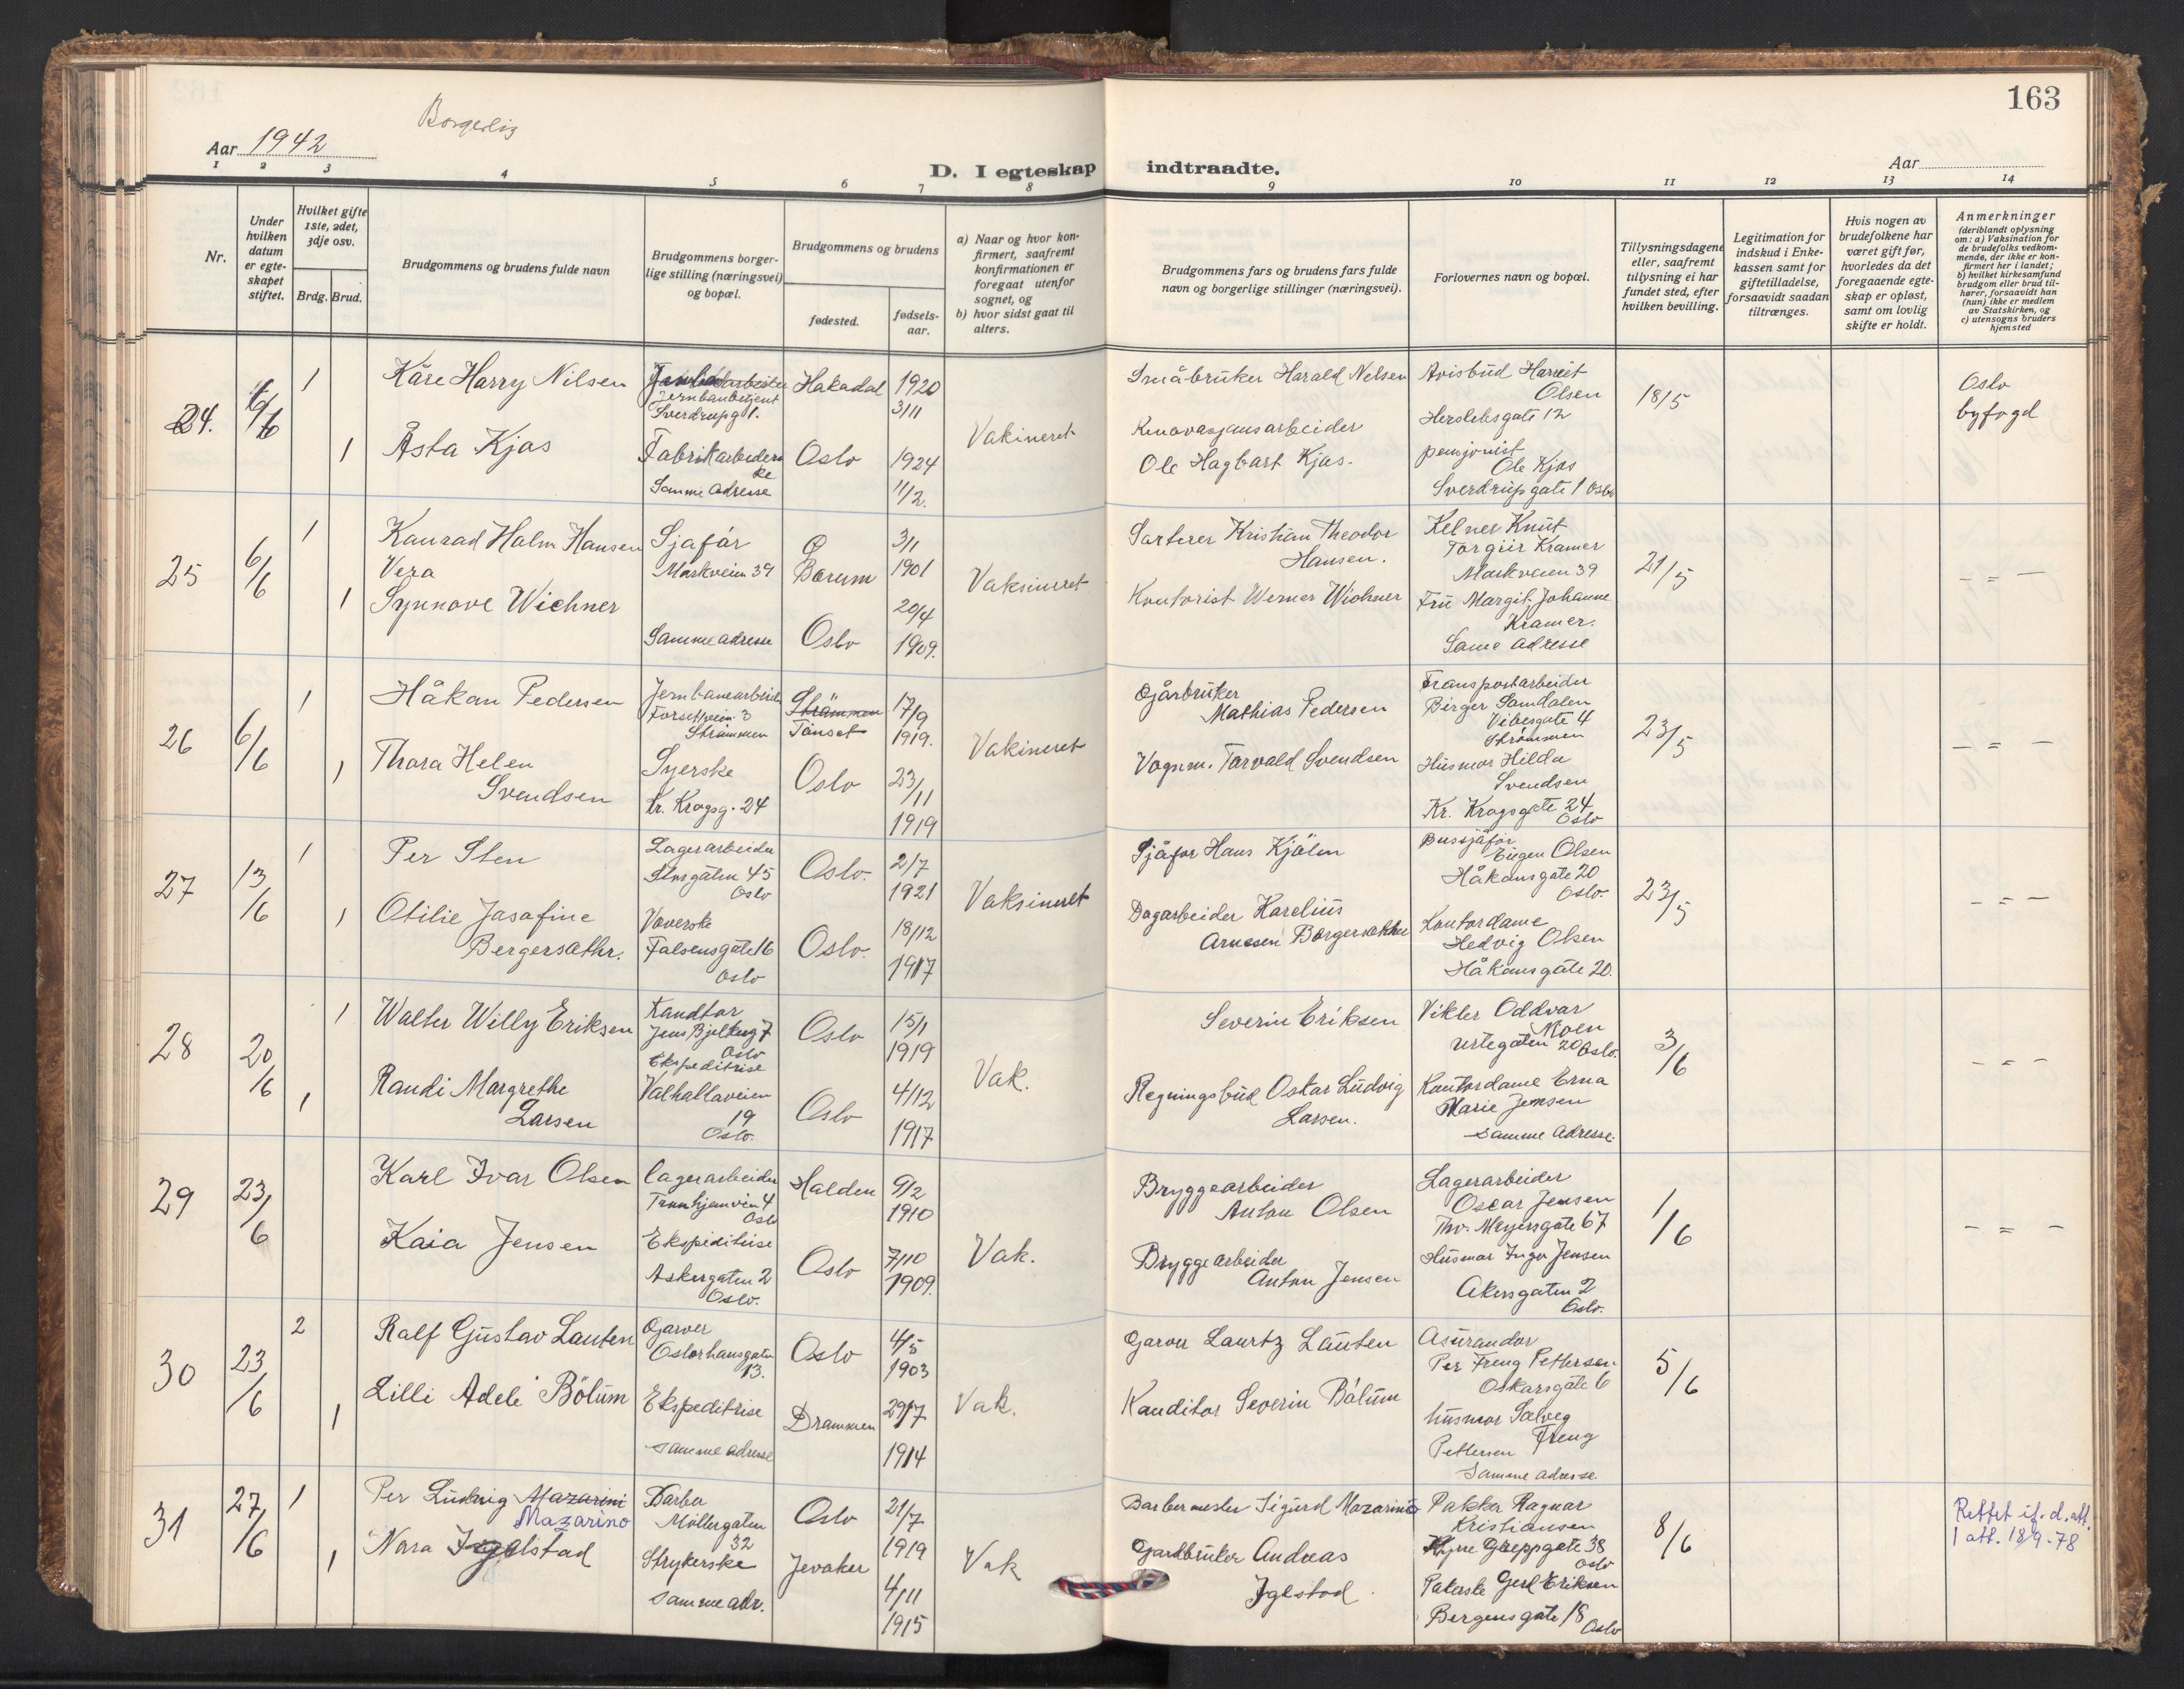 163
Borgerlig
Aar 1942
Aar
D. I egteskap indtraadte.
1 2 3 4 5 6 7 8 9 10 11 12 13 14
Nr.
Under hvilken datum er egteskapet stiftet.
Hvilket gifte 1ste, 2det, 3dje osv.
Brdg. Brud.
Brudgommens og brudens fulde navn
Brudgommens borgerlige stilling (næringsvei) og bopæl.
Brudgommens og brudens
fødested.
fødselsaar.
a) Naar og hvor konfirmert, saafremt konfirmationen er foregaat utenfor sognet, og
b) hvor sidst gaat til alters.
Brudgommens fars og brudens fars fulde navn og borgerlige stillinger (næringsvei).
Forlovernes navn og bopæl.
Tillysningsdagene eller, saafremt tillysning ei har fundet sted, efter hvilken bevilling.
Legitimation for indskud i Enkekassen samt for giftetilladelse, forsaavidt saadan tiltrænges.
Hvis nogen av brudefolkene har været gift før, hvorledes da det foregaaende egteskap er opløst, samt om lovlig skifte er holdt.
Anmerkninger
(deriblandt oplysning om: a) Vaksination for de brudefolks vedkommende, der ikke er konfirmert her i landet; b) hvilket kirkesamfund brudgom eller brud tilhører, forsaavidt han (hun) ikke er medlem av Statskirken, og c) utensogns bruders hjemsted
24.
6/6
1
Kåre Harry Nilsen
Jernbanbetjent
Sverdrupg 1.
Hakadal
1920
3/11
1
Åsta Kjos
Fabrikarbeiderske
Samme Adresse
Oslo
1924
11/2.
Vakineret
Småbruker Harald Nelsen
Renovasjonsarbeider
Ole Hagbart Kjos.
Avisbud Harriet
Olsen
Herslebsgate 12
pensjonist
Ole Kjos
Sverdrupgate 1 Oslo
18/5
Oslo
byfogd
25
6/6
1
Konrad Holm Hansen
Sjafør
Markveien 39
Ø
Bærum
3/1
1901
1
Vera
Synnøve Wichner
Samme adresse
Oslo
20/4
1909.
Vaksineret
Sorterer Kristian Theodor
Hansen.
Kontorist Werner Wichner
Kelner Knut
Torgeir Kramer
Markveien 39
Fru Margit Johanne
Kramer.
Same adresse
21/5
- = -
26
6/6
1
Håkan Pedersen
Jernbanearbeider
Forsetveien 3
Strømmen
Strømmen
Tönset
17/9
1919.
1
Thora Helen
Svendsen
Syerske
Kr. Krogsg. 24
Oslo
23/11
1919
Vakineret
Gjårbruker
Mathias Pedersen
Vognm. Torvald Svendsen
Transportarbeider
Birger Samdalen
Vibesgate 4
Strömmen
Husmor Hilda
Svendsen
Kr. Krogsgate 24
Oslo
23/5
- = -
27
13/6
1
Per Sten
Lagerarbeider
Storgaten 45
Oslo
Oslo.
2/7
1921
1
Otilie Josefine
Bergersæthr.
Væverske
Falsensgate 16
Oslo
Oslo.
18/12
1917
Vaksineret
Sjåfør Hans Kjölen
Dagarbeider Karelius
Arnesen
Bussjåfør
Eugen Olsen
Håkonsgate 20
Oslo.
Kontordame
Hedvig Olsen
Håkonsgate 20.
23/5
- = -
28
20/6
1
Walter Willy Eriksen
Kanditor
Oslo
Oslo
15/1
1919
1
Randi Margrethe
Larsen
Ekspeditrise
Valhallaveien
19
Oslo.
Oslo
4/12
1917
Vak.
Severin Eriksen
Regningsbud Oskar Ludvig
Larsen.
Vikler Oddvar
Moen
Urtegaten 20 Oslo.
Kontordame Erna
Marie Jensen
samme adresse.
3/6
- = -
29
23/6
Karl Ivar Olsen
Lagerarbeider
Oslo
Halden
9/2
1910
Kaia Jensen
Ekspeditrise
Askergaten 2
Oslo.
Oslo
7/10
1909.
Vak.
Bryggearbeider
Anton Olsen
Bryggearbeider
Anton Jensen
Lagerarbeider
Oscar Jensen
Thv. Meyersgate 67
Husmor Inga Jensen
Akersgaten 2
Oslo.
1/6
- = -
30
23/6
2
Ralf Gustav Lauten
Garver
Osterhausgaten
13.
Oslo
4/5
1903
1
Lilli Adele Bölum
Ekspeditrise
samme adresse
Drammen
29/7
1914
Vak.
Garver Laurtz Lauten
Kanditor Severin Bölum
Asurandør
Per Freng Pettersen
Oskarsgate 6
husmor Solveg
Pettersen Freng
Samme adresse
5/6
31
27/6
1
Per Ludvig Mazarini
Mazarino
Barber
Möllergaten
32
Oslo
21/7
1919
1
Nora Igelstad
Strykerske
samme adr.
Jevaker
4/11
1915
Vak
Barbermester Sigurd Mazarino
Gardbruker Andreas
Igelstad.
Pakker Ragnar
Kristiansen
38
Oslo
Gerd Eriksen
Bergensgate 18
Oslo
8/6
Rettet if. d. att.
1 att. 18/9-78